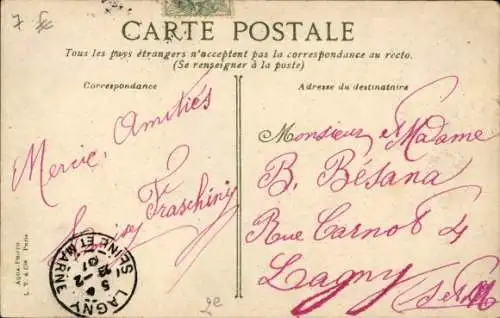 7 Fc
CARTE POSTALE
Tous les pays étrangers n'acceptent pas la correspondance au recto.
(Se renseigner à la poste)
Correspondance
Mercie, Amitiés
Fraschini
Adresse du destinataire
Monsieur et Madame
B. Bésana
Rue Carnot 4
Lagny
(S et M)
Aqua-Photo
L. V. & Cie Paris
LAGNY
SEINE ET MARNE
5-2
07
2e